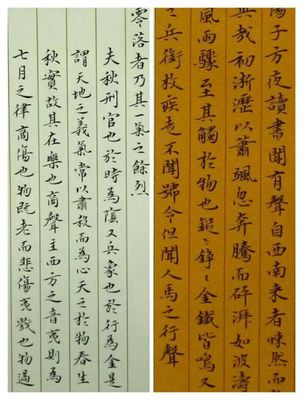 陽子方夜讀書聞有聲自西南来者悚然而
異哉初淅瀝以蕭颯忽奔騰而砰湃如波濤
風雨驟至其觸於物也鏦鏦錚錚金鐵皆鳴又
之兵銜枚疾走不聞號令但聞人馬之行聲
零落者乃其氣之餘烈
夫秋刑官也於時為陰又兵象也於行為金是
謂天地之義氣常以肅殺而為心天之於物春生
秋實故其在樂也商聲主西方之音夷則為
七月之律商傷也物既老而悲傷夷戮也物過